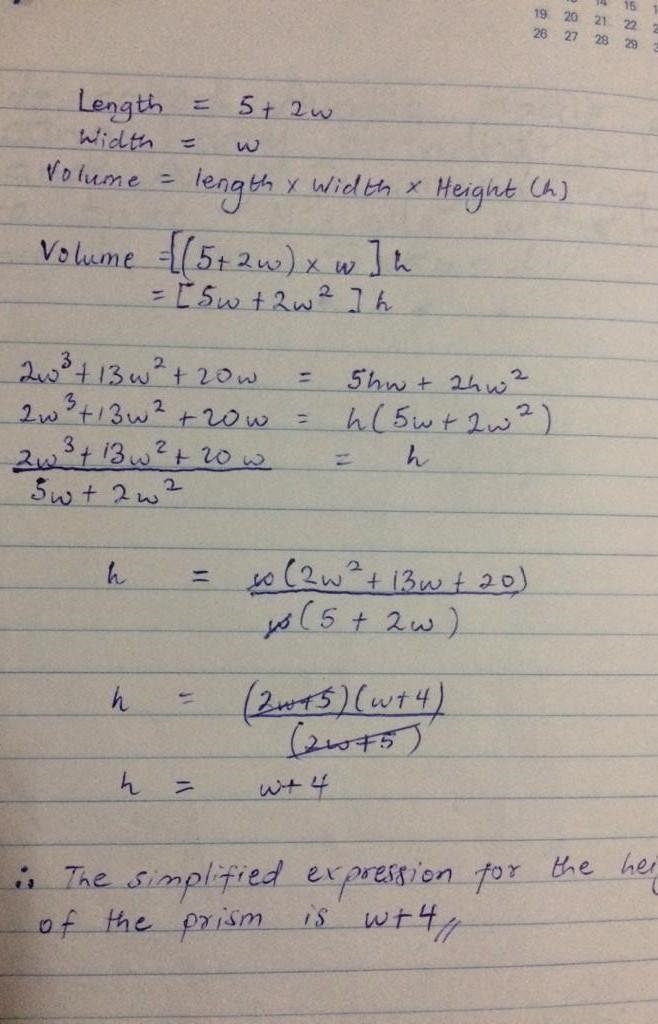 14 15
19 20 21 22
26 27 28 29
Length = 5 + 2w
Width = w
Volume = length x Width x Height (h)
Volume = [(5 + 2w) x w] h
= [5w + 2w²] h
2w³ + 13w² + 20w = 5hw + 2hw²
2w³ + 13w² + 20w = h(5w + 2w²)
2w³ + 13w² + 20w = h
5w + 2w²
h = w(2w² + 13w + 20)
w(5 + 2w)
h = (2w+5)(w+4)
(2w+5)
h = w+4
∴ The simplified expression for the hei
of the prism is w+4//